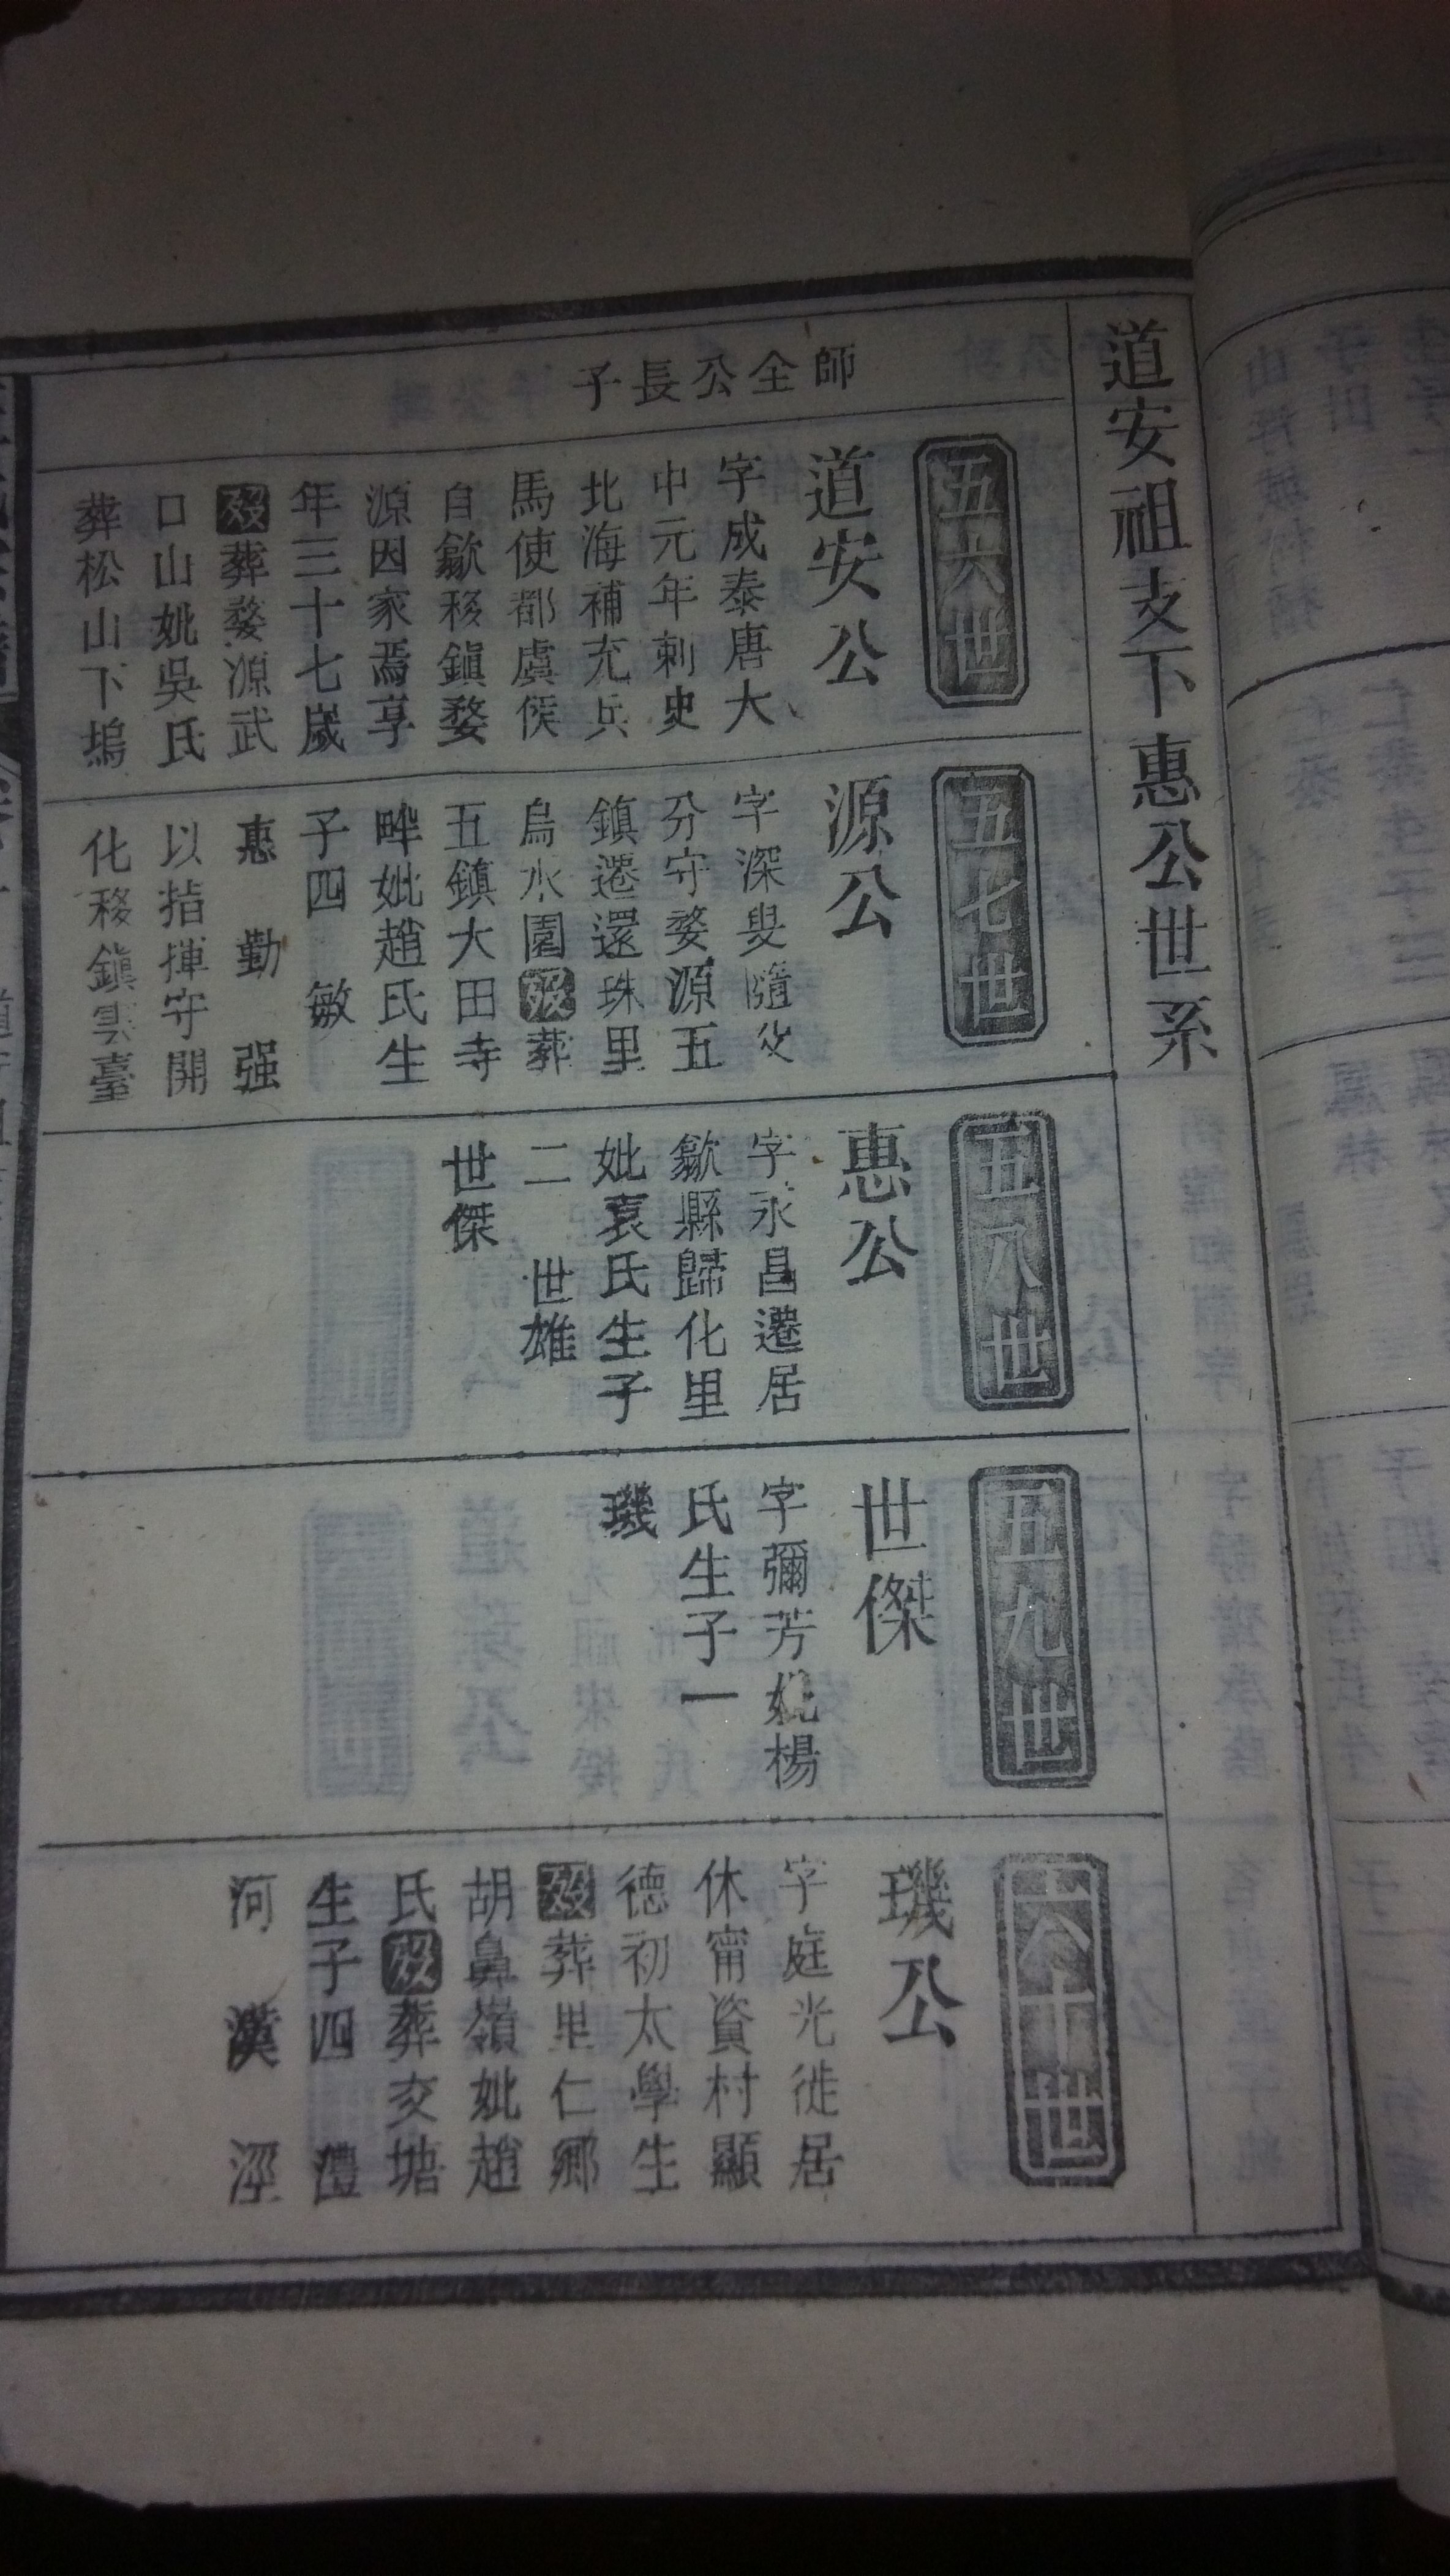 道安祖支下惠公世系
師全公長子
五六世
道安公
字成泰唐大
中元年刺史
北海補充兵
馬使都虞候
自歙移鎭婺
源因家焉享
年三十七歲
歿葬婺源武
口山妣吳氏
葬松山下塢
五七世
源公
字深叟隨父
分守婺源五
鎮遷還珠里
烏水園歿葬
五鎮大田寺
畔妣趙氏生
子四 敏
惠 勤 强
以指揮守開
化移鎭雲臺
五八世
惠公
字永昌遷居
歙縣歸化里
妣袁氏生子
二 世雄
世傑
五九世
世傑
字彌芳妣楊
氏生子一
璣
六十世
璣公
字庭光徙居
休甯資村顯
德初太學生
歿葬里仁鄉
胡鼻嶺妣趙
氏歿葬交塘
生子四 澧
河 漢 涇